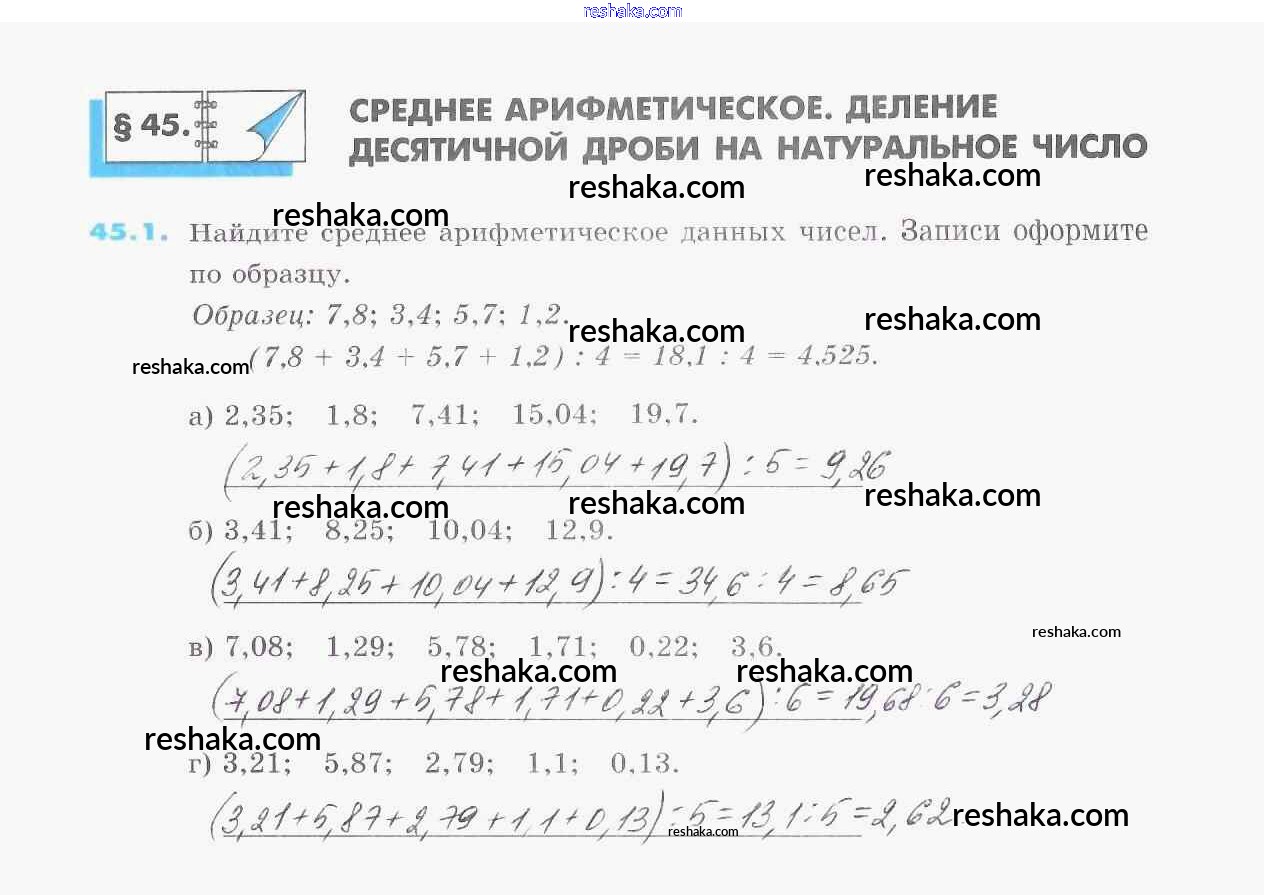 reshaka.com
§ 45.
СРЕДНЕЕ АРИФМЕТИЧЕСКОЕ. ДЕЛЕНИЕ
ДЕСЯТИЧНОЙ ДРОБИ НА НАТУРАЛЬНОЕ ЧИСЛО
reshaka.com reshaka.com
reshaka.com
45.1. Найдите среднее арифметическое данных чисел. Записи оформите
по образцу.
Образец: 7,8; 3,4; 5,7; 1,2.
reshaka.com reshaka.com
reshaka.com (7,8 + 3,4 + 5,7 + 1,2) : 4 = 18,1 : 4 = 4,525.
а) 2,35; 1,8; 7,41; 15,04; 19,7.
(2,35+1,8+7,41+15,04+19,7):5=9,26
reshaka.com reshaka.com reshaka.com
б) 3,41; 8,25; 10,04; 12,9.
(3,41+8,25+10,04+12,9):4=34,6:4=8,65
reshaka.com
в) 7,08; 1,29; 5,78; 1,71; 0,22; 3,6.
reshaka.com reshaka.com
(7,08+1,29+5,78+1,71+0,22+3,6):6=19,68:6=3,28
reshaka.com
г) 3,21; 5,87; 2,79; 1,1; 0,13.
(3,21+5,87+2,79+1,1+0,13):5=13,1:5=2,62 reshaka.com
reshaka.com